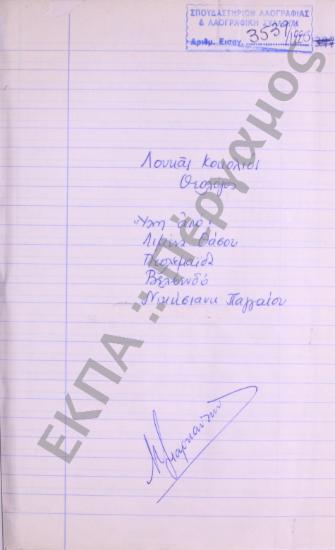 ΣΠΟΥΔΑΣΤΗΡΙΟΝ ΛΑΟΓΡΑΦΙΑΣ
& ΛΑΟΓΡΑΦΙΚΗ ΣΥΛΛΟΓΗ
Αριθμ. Εισαγ. 3539/1980
Λουκᾶς
Θεολόγος
Ὕλη ἀπό:
Λιμένα Θάσου
Πτολεμαΐδα
Βελβενδό
Νικήσιανη Παγγαίου
ΕΚΠΑ :: Πέργαμος